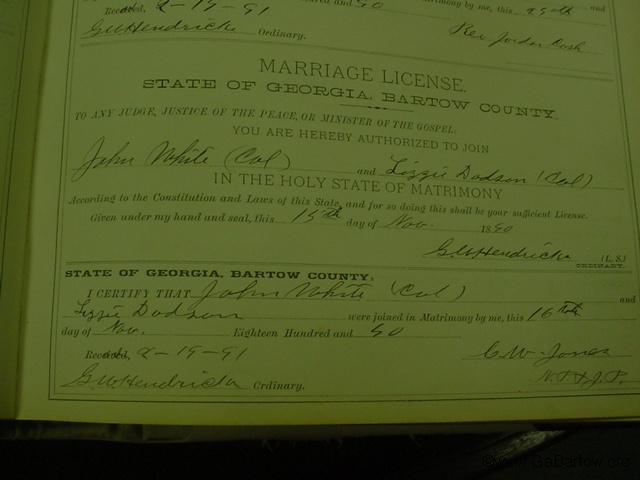 Reca'd, 2-19-91 and 90 Matrimony by me, this 25th and
G.W. Hendricks Ordinary. Rev Jordan Cash
MARRIAGE LICENSE.
STATE OF GEORGIA, BARTOW COUNTY.
TO ANY JUDGE, JUSTICE OF THE PEACE, OR MINISTER OF THE GOSPEL:
YOU ARE HEREBY AUTHORIZED TO JOIN
John White (Col) and Lizzie Dodson (Col)
IN THE HOLY STATE OF MATRIMONY
According to the Constitution and Laws of this State, and for so doing this shall be your sufficient License.
Given under my hand and seal, this 15th day of Nov. 1890
G.W. Hendricks (L. S.)
ORDINARY.
STATE OF GEORGIA, BARTOW COUNTY:
I CERTIFY THAT John White (Col) and
Lizzie Dodson were joined in Matrimony by me, this 16th
day of Nov. Eighteen Hundred and 90
Reca'd, 2-19-91 C.W. Jones
G.W. Hendricks Ordinary. N.P. & J.P.
www.GaBartow.org